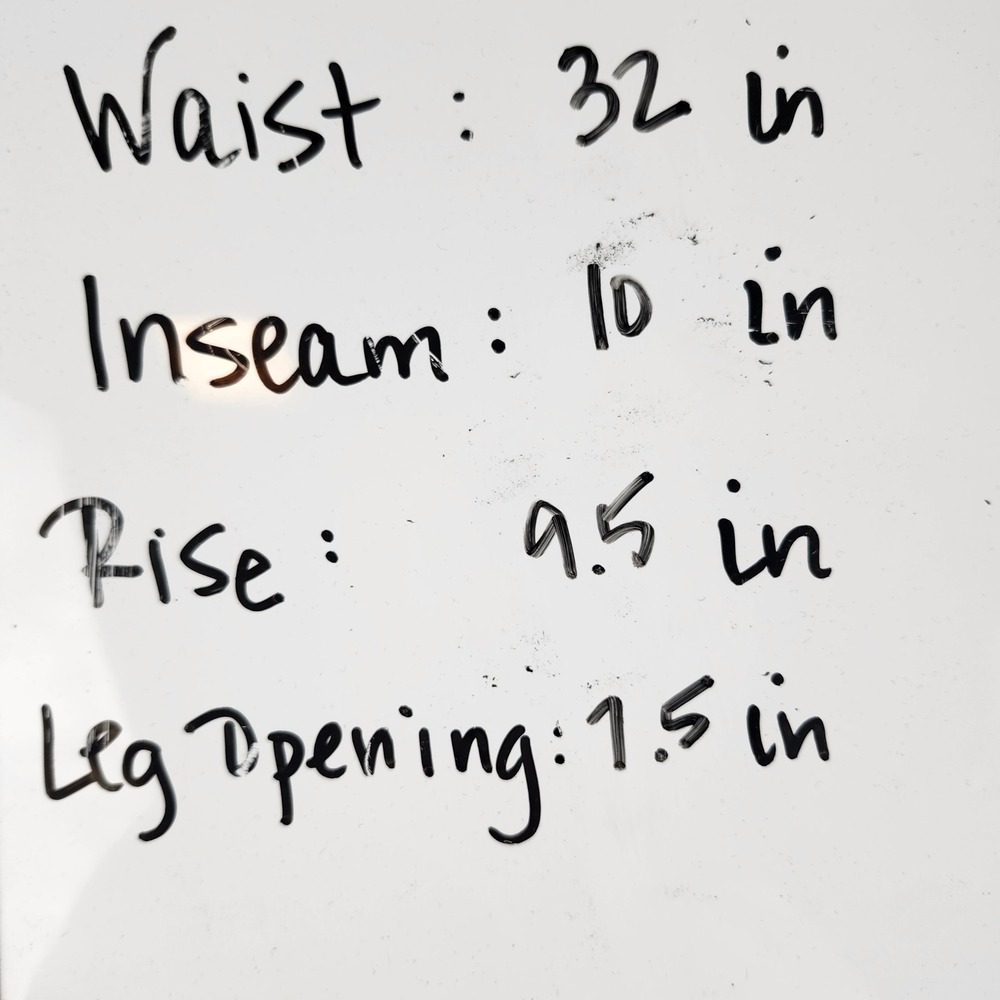 Waist : 32 in
Inseam : 10 in
Rise : 9.5 in
Leg Opening : 7.5 in